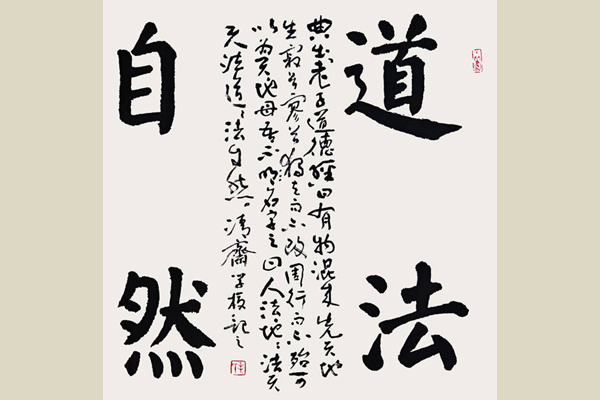 道法
自然
典出老子道德經曰有物混成先天地
生寂兮寥兮獨立而不改周行而不殆可
以为天地母吾不名字之曰人法地〻法天
天法道〻法自然。清齋記之